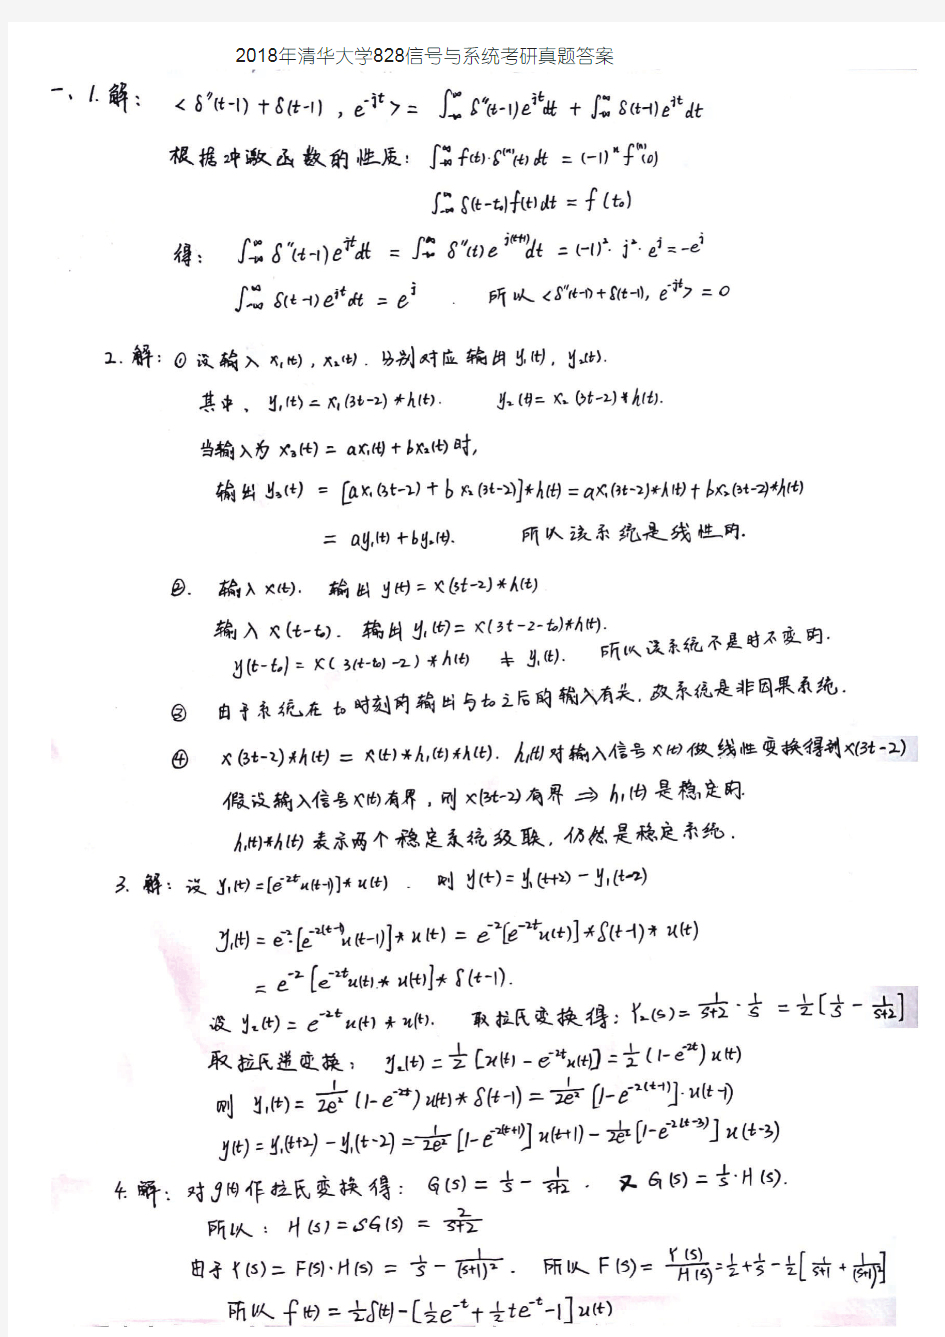 2018年清华大学828信号与系统考研真题答案
一、1.解: <δ''(t-1)+δ(t-1), e^{-jt}> = ∫_{-∞}^{∞} δ''(t-1)e^{jt}dt + ∫_{-∞}^{∞} δ(t-1)e^{jt}dt
根据冲激函数的性质: ∫_{-∞}^{∞} f(t)·δ^{(n)}(t)dt = (-1)^n f^{(n)}(0)
∫_{-∞}^{∞} δ(t-t₀)f(t)dt = f(t₀)
得: ∫_{-∞}^{∞} δ''(t-1)e^{jt}dt = ∫_{-∞}^{∞} δ''(t)e^{j(t+1)}dt = (-1)²·j²·e^j = -e^j
∫_{-∞}^{∞} δ(t-1)e^{jt}dt = e^j . 所以 <δ''(t-1)+δ(t-1), e^{-jt}> = 0
2.解: ① 设输入 x₁(t), x₂(t). 分别对应输出 y₁(t), y₂(t).
其中、y₁(t) = x₁(3t-2)*h(t). y₂(t) = x₂(3t-2)*h(t).
当输入为 x₃(t) = ax₁(t)+bx₂(t) 时,
输出 y₃(t) = [ax₁(3t-2)+bx₂(3t-2)]*h(t) = ax₁(3t-2)*h(t)+bx₂(3t-2)*h(t)
= ay₁(t)+by₂(t). 所以该系统是线性的.
②. 输入 x(t). 输出 y(t) = x(3t-2)*h(t)
输入 x(t-t₀). 输出 y₁(t) = x(3t-2-t₀)*h(t).
y(t-t₀) = x(3(t-t₀)-2)*h(t) ≠ y₁(t). 所以该系统不是时不变的.
③ 由于系统在 t₀ 时刻的输出与 t₀ 之后的输入有关, 故系统是非因果系统.
④ x(3t-2)*h(t) = x(t)*h₁(t)*h(t). h₁(t) 对输入信号 x(t) 做线性变换得到 x(3t-2)
假设输入信号 x(t) 有界, 则 x(3t-2) 有界 ⇒ h₁(t) 是稳定的.
h₁(t)*h(t) 表示两个稳定系统级联, 仍然是稳定系统.
3.解: 设 y₁(t) = [e^{-2t}u(t-1)]*u(t) . 则 y(t) = y₁(t+2) - y₁(t-2)
y₁(t) = e^{-2}·[e^{-2(t-1)}u(t-1)]*u(t) = e^{-2}[e^{-2t}u(t)]*δ(t-1)*u(t)
= e^{-2}[e^{-2t}u(t)*u(t)]*δ(t-1).
设 y₂(t) = e^{-2t}u(t)*u(t). 取拉氏变换得: Y₂(s) = 1/(s+2)·1/s = 1/2[1/s - 1/(s+2)]
取拉氏逆变换: y₂(t) = 1/2[u(t) - e^{-2t}u(t)] = 1/2(1-e^{-2t})u(t)
则 y₁(t) = 1/(2e²)(1-e^{-2t})u(t)*δ(t-1) = 1/(2e²)[1-e^{-2(t-1)}]·u(t-1)
y(t) = y₁(t+2) - y₁(t-2) = 1/(2e²)[1-e^{-2(t+1)}]u(t+1) - 1/(2e²)[1-e^{-2(t-3)}]u(t-3)
4.解: 对 g(t) 作拉氏变换得: G(s) = 1/s - 1/(s+2) . 又 G(s) = 1/s·H(s).
所以: H(s) = sG(s) = 2/(s+2)
由于 Y(s) = F(s)·H(s) = 1/s - 1/(s+1)² . 所以 F(s) = Y(s)/H(s) = 1/2 + 1/s - 1/2[1/(s+1) + 1/(s+1)²]
所以 f(t) = 1/2δ(t) - [1/2e^{-t} + 1/2te^{-t} - 1]u(t)